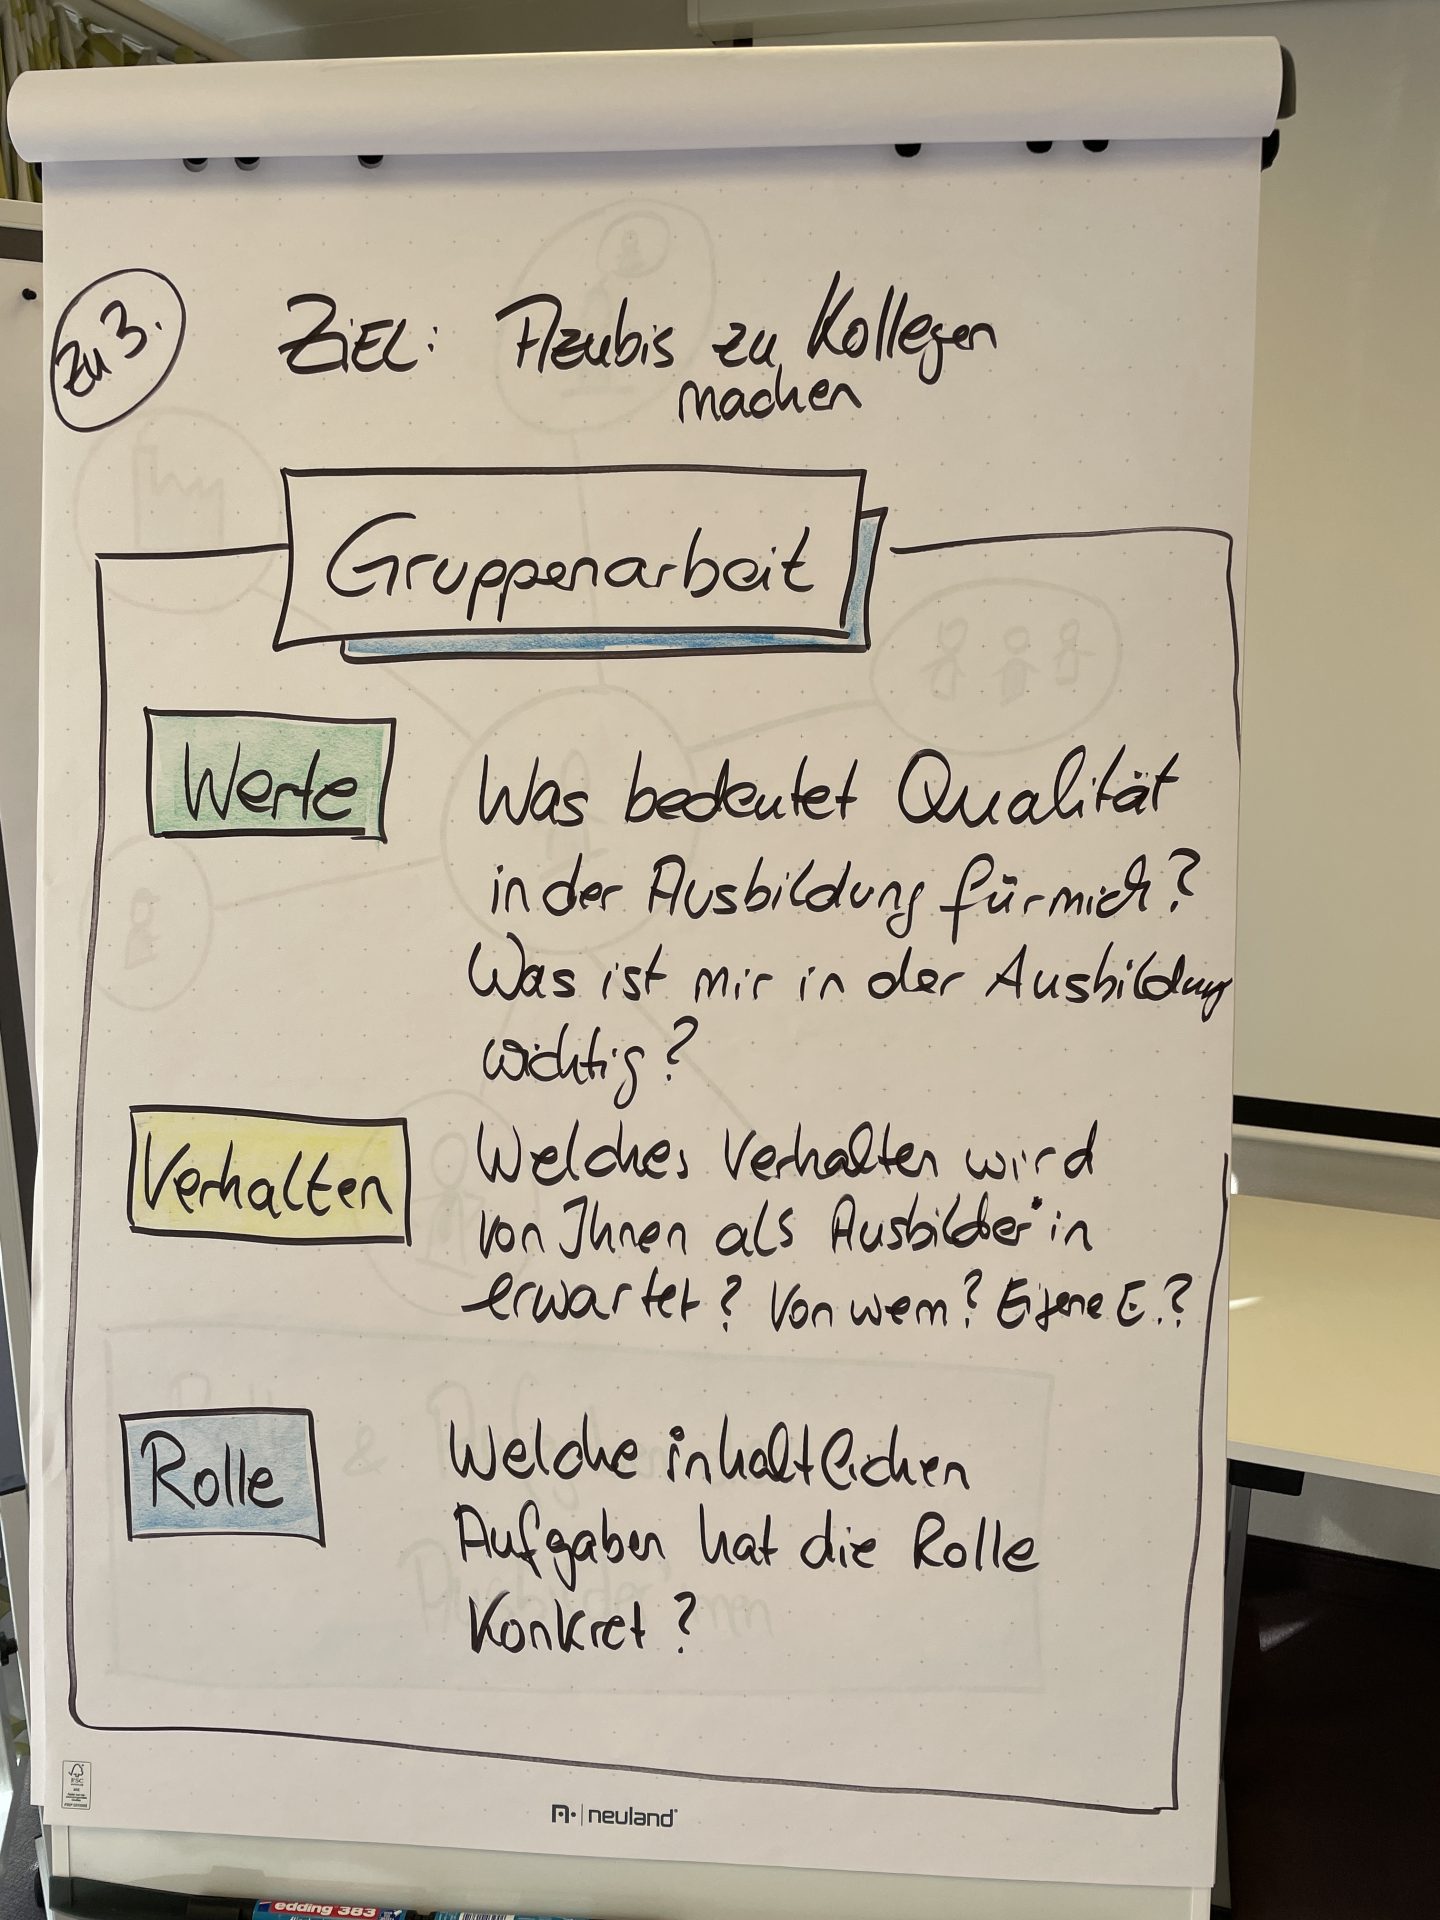 zu 3.
ZiEL: Azubis zu Kollegen
machen
Gruppenarbeit
Werte
Was bedeutet Qualität
in der Ausbildung für mich?
Was ist mir in der Ausbildung
wichtig?
Verhalten
Welches Verhalten wird
von Ihnen als Ausbilder*in
erwartet? Von wem? Eigene E.?
Rolle
Welche inhaltlichen
Aufgaben hat die Rolle
Konkret?
FSC
neuland
edding 383